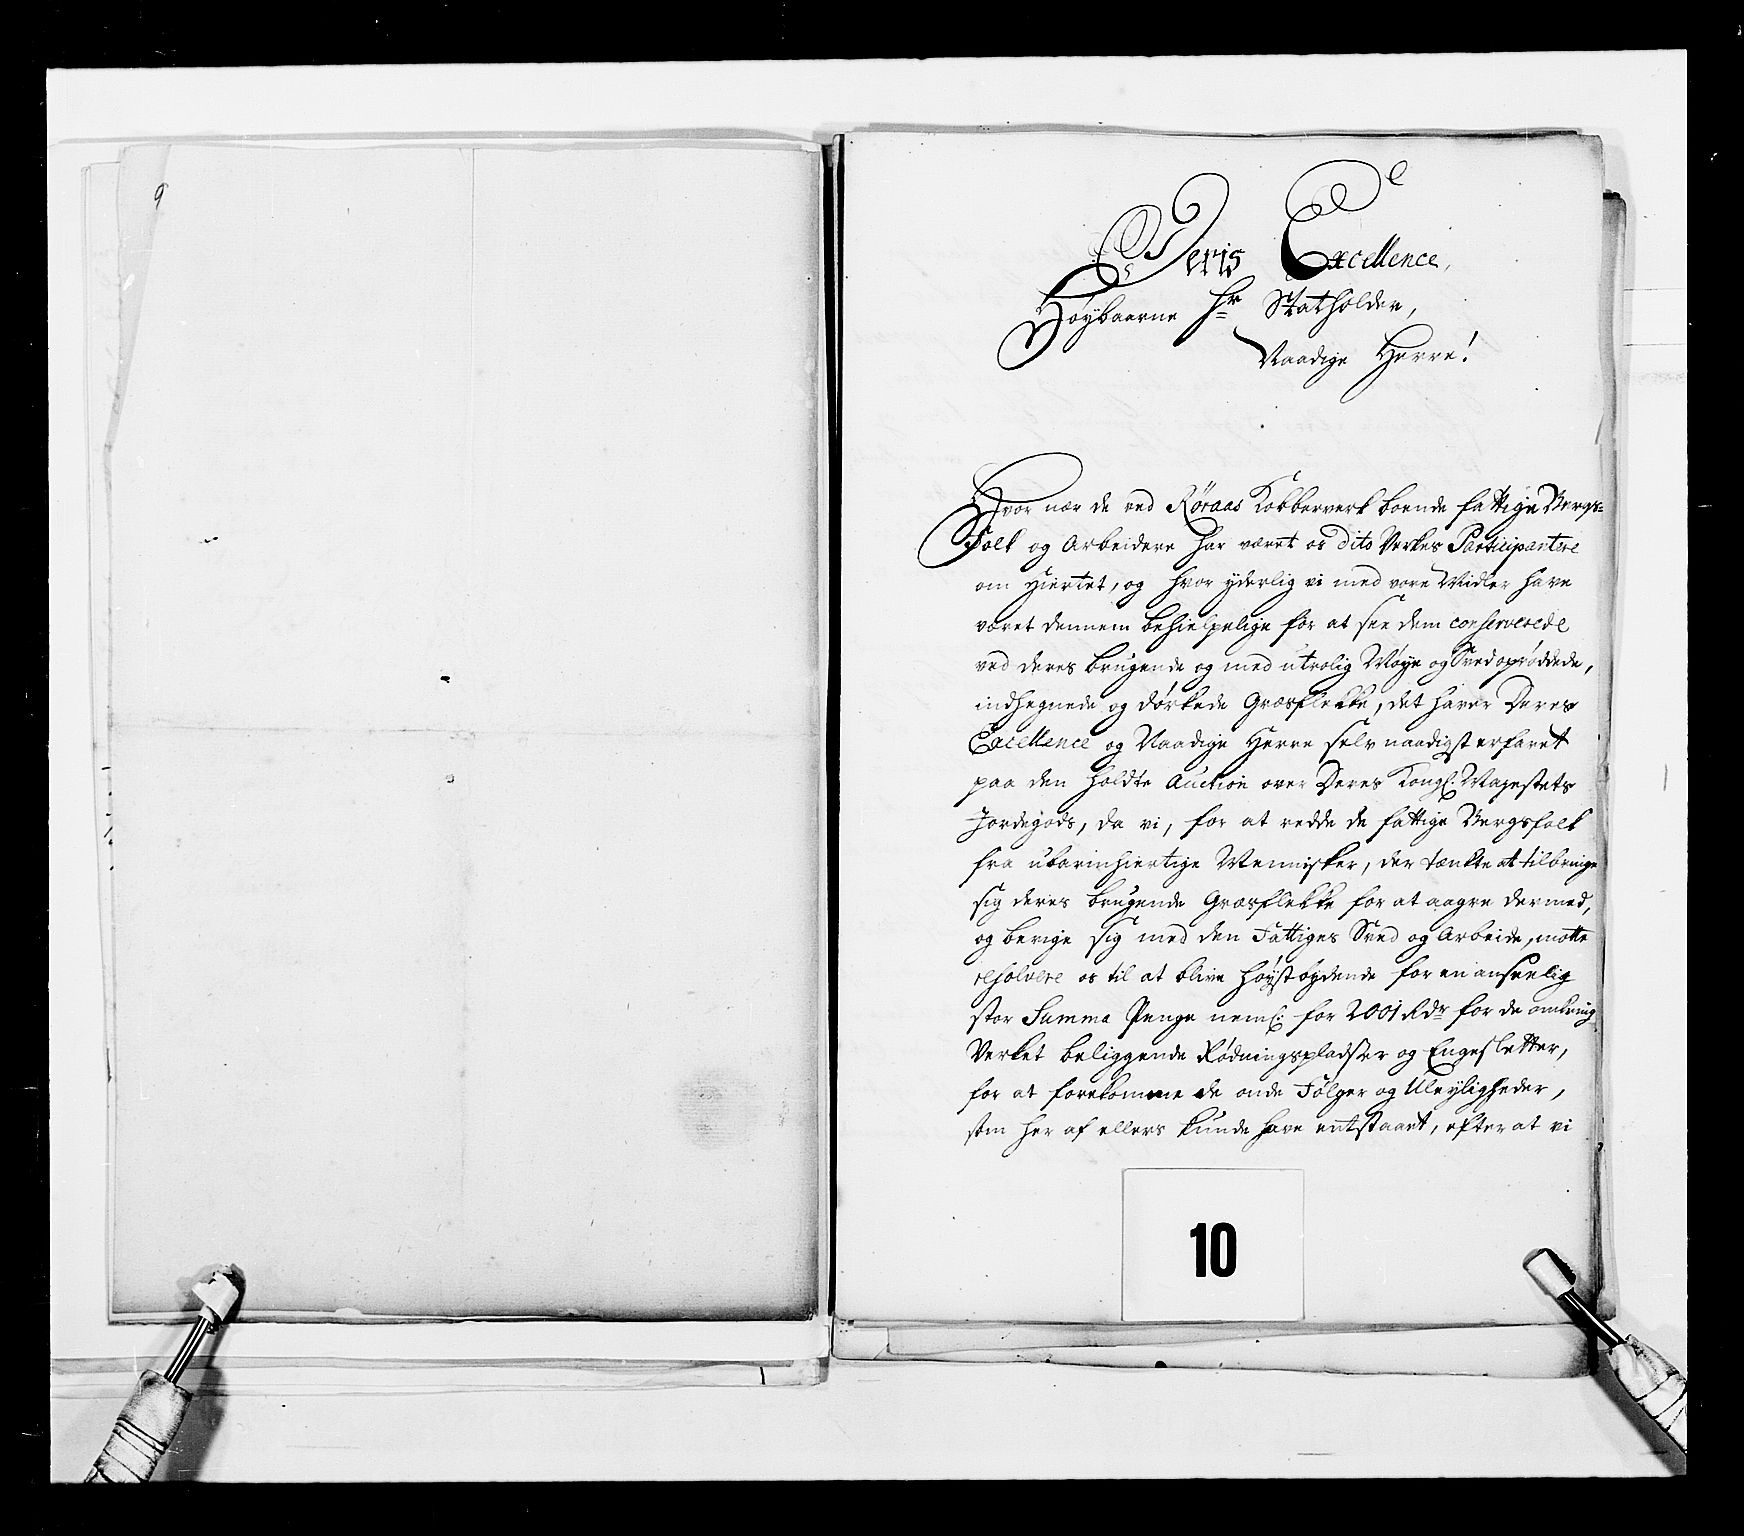 9
Deris Excellence,
Høybaarne Hr Statholder,
Naadige Herre!
Hvor nær de ved Røraas Kobberverk boende fattige Bergs-
Folk og Arbeidere har været os dito Verkes Participantere
om Hiertet, og hvor yderlig vi med vore Midler have
været dennem behielpelige for at see dem conserverede
ved deres brugende og med utrolig Møye og Sved oprøddede,
indhegnede og dørkede Græsflekke, det haver Deres
Excellence og Naadige Herre selv naadigst erfaret
paa den holdte Auction over Deres Kongl: Majestets
Jordegods, da vi, for at redde de fattige Bergsfolk
fra ubarmhiertige Mennisker, der tænkte at tilbringe
sig deres brugende Græsflekke for at aagre dermed,
og berige sig med den Fattiges Sved og Arbeide, motte
resolvere os til at blive høystbydende for en anseelig
stor Summa Penge neml: for 2001 Rdr for de omkring
Verket beliggende Rødningspladser og Engesletter,
for at forekomme de onde Følger og Uleyligheder,
som her af ellers kunde have entstaaet, efter at vi
10